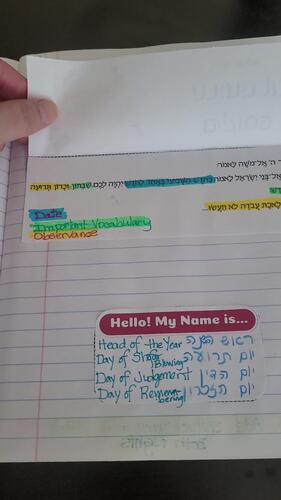 ר ה' אֶל־מֹשֶׁה לֵּאמֹר:
אֶל־בְּנֵי יִשְׂרָאֵל לֵאמֹר בַּחֹדֶשׁ הַשְּׁבִיעִי בְּאֶחָד לַחֹדֶשׁ יִהְיֶה לָכֶם שַׁבָּתוֹן זִכְרוֹן תְּרוּעָה
דֶשׁ
לֶאכֶת עֲבֹדָה לֹא תַעֲשׂוּ...
Date
Important Vocabulary
Observance
Hello! My Name is...
Head of the Year ראש השנה
Day of Shofar Blowing יום תרועה
Day of Judgement יום הדין
Day of Remembering יום הזכרון